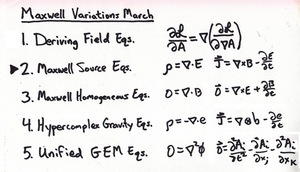 Maxwell Variations March
1. Deriving Field Eqs. ∂ℒ/∂A = ∇(∂ℒ/∂∇A)
▶2. Maxwell Source Eqs. ρ = ∇·E J⃗ = ∇×B - ∂E/∂t
3. Maxwell Homogeneous Eqs. 0 = ∇·B 0⃗ = ∇×E + ∂B/∂t
4. Hypercomplex Gravity Eqs. ρ = -∇·e J⃗ = ∇⊗b - ∂e/∂t
5. Unified GEM Eqs. 0 = ∇²φ 0⃗ = ∂²Aᵢ/∂t² + ∂²Aᵢ/∂xⱼ - ∂²Aᵢ/∂xₖ